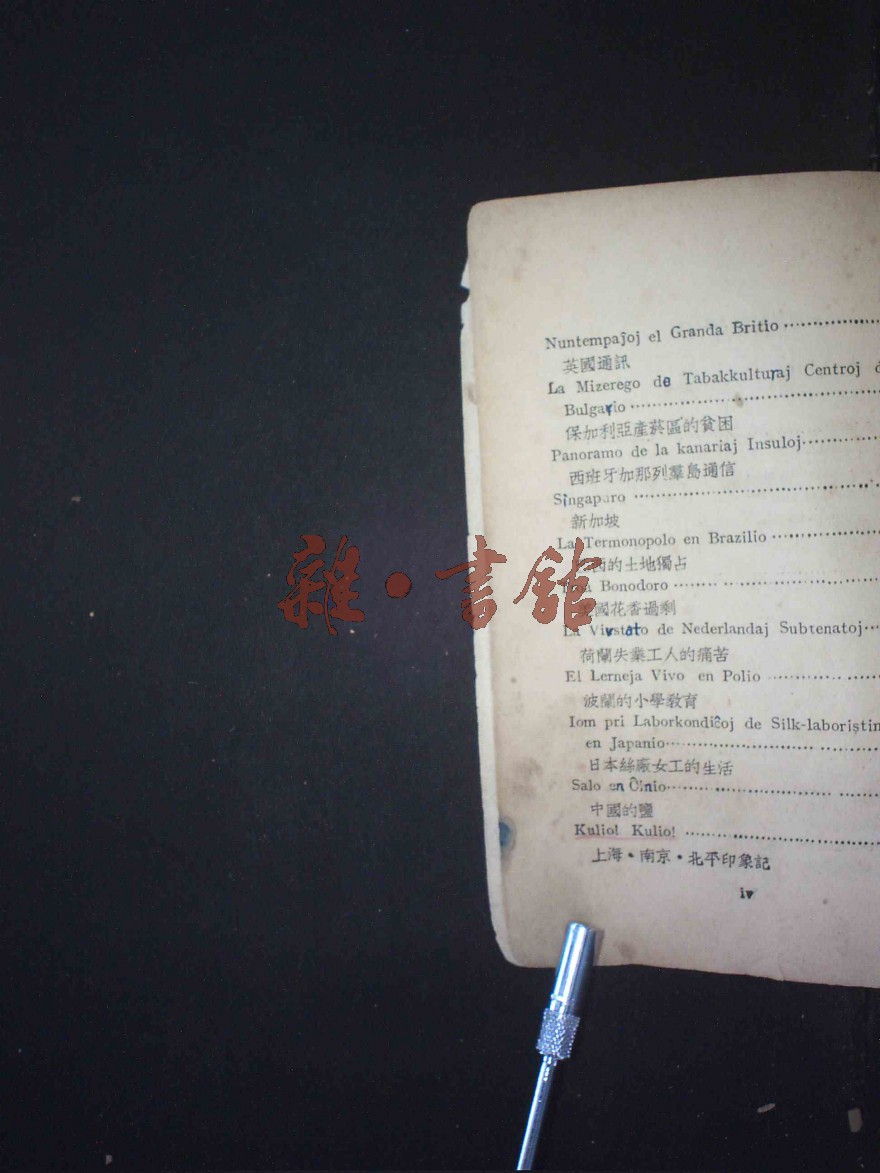 Nuntempaĵoj el Granda Britio
英國通訊
La Mizerego de Tabakkulturaj Centroj d
Bulgario
保加利亞產菸區的貧困
Panoramo de la kanariaj Insuloj
西班牙加那列羣島通信
Singaparo
新加坡
La Termonopolo en Brazilio
西的土地獨占
Bonodoro
國花香過剩
La Vivstato de Nederlandaj Subtenatoj
荷蘭失業工人的痛苦
El Lerneja Vivo en Polio
波蘭的小學教育
Iom pri Laborkondiĉoj de Silk-laboristin
en Japanio
日本絲廠女工的生活
Salo en Ĉinio
中國的鹽
Kulio! Kulio!
上海・南京・北平印象記
iv
雜・書館